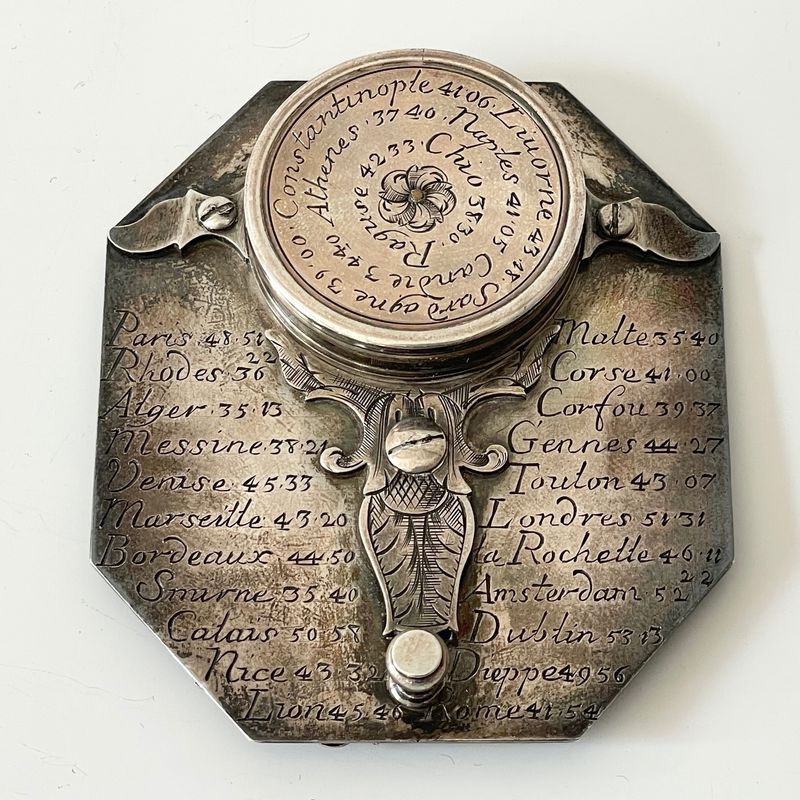 Constantinople 41 06. Livorne 43 18 Sardagne 39 00.
Athenes. 37 40. Naples. 41. 05 Candie 34 40
Raguse 42 33. Chio 38. 30.
Paris 48. 51
Rhodes 36 22
Alger. 35. 13
Messine. 38. 21
Venise. 45. 33
Marseille 43. 20
Bordeaux 44. 50
Smirne. 35. 40
Calais 50 58
Nice 43. 32
Lion 45. 46
Malte 35 40
Corse 41. 00
Corfou 39. 37
Gennes 44. 27
Toulon 43. 07
Londres 51. 31
la Rochelle 46. 11
Amsterdam 52 22
Dublin 53. 13
Dieppe 49 56
Rome 41. 54